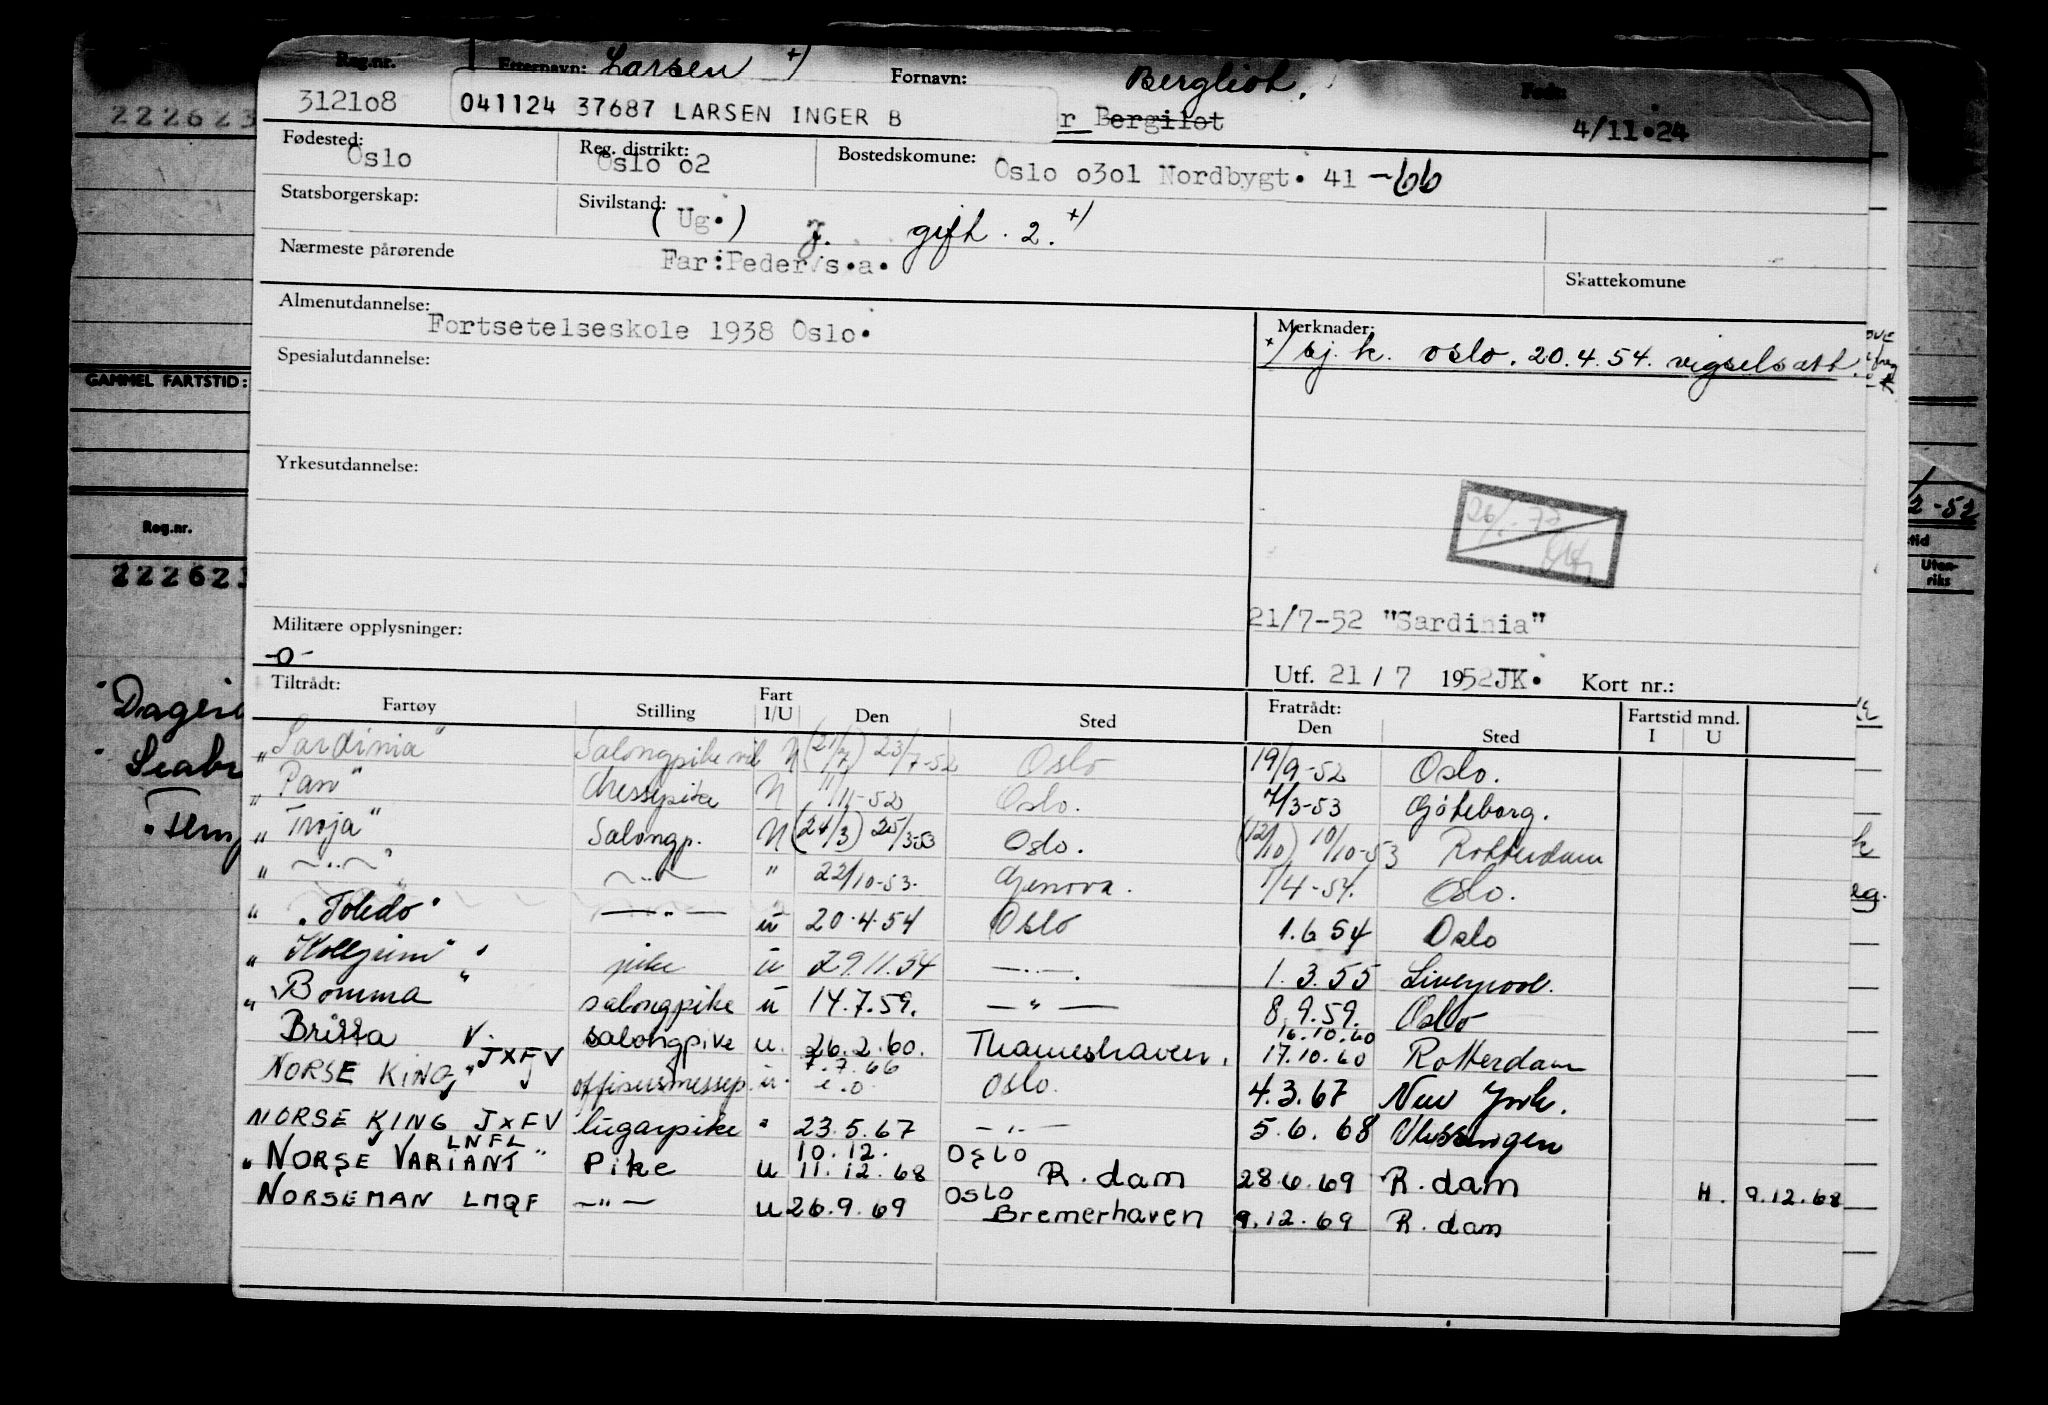 Reg.nr. Etternavn: Larsen +) Fornavn: Bergliot. Født:
312108 041124 37687 LARSEN INGER B r Bergilot 4/11.24
Fødested: Oslo Reg. distrikt: Oslo o2 Bostedskomune: Oslo o3o1 Nordbygt. 41 -66
Statsborgerskap: Sivilstand: (Ug.) gift. 2. +)
Nærmeste pårørende Far:Peder/s.a. Skattekomune
Almenutdannelse: Fortsetelseskole 1938 Oslo.
Merknader:
+) sj.k. oslo. 20.4.54. vigselsatt.
Spesialutdannelse:
Yrkesutdannelse:
Militære opplysninger:
-o-
21/7-52 "Sardinia"
Utf. 21 / 7 1952JK. Kort nr.:
Tiltrådt: Fartøy Stilling Fart I/U Den Sted Fratrådt: Den Sted Fartstid mnd. I U
" Sardinia" Salongpike vik U (21/7) 23/7-52 Oslo 19/9-52 Oslo.
" Pan" Messepike U 11/11-52 Oslo. 7/3-53 Göteborg.
" Troja" Salongp. U (24/3) 25/3-53 Oslo. (12/10) 10/10-53 Rotterdam
" — " — — " — " 22/10-53. Genova. 1/4-54. Oslo.
" "Toledo" — " — u 20.4.54 Oslo 1.6 54 Oslo
" "Kollgrim" pike u 29.11.54 — " —. 1.3.55 Liverpool.
" Bomma" salongpike u 14.7.59. — " — 8.9.59. Oslo
Britta V. salongpike u. 26.2.60. Thameshaven. 16.10.60 17.10.60 Rotterdam
NORSE KING" JXFV offisersmessep. u. 7.7.66 Oslo. 4.3.67 New York.
NORSE KING JXFV lugarpike " 23.5.67 — " — 5.6.68 Vlissingen
"NORSE VARIANT" LNFL Pike u 10.12. 11.12.68 Oslo R.dam 28.6.69 R.dam H. 9.12.68
NORSEMAN LMQF — " — u 26.9.69 Oslo Bremerhaven 9.12.69 R.dam
222623
GAMMEL FARTSTID:
Reg.nr.
2-52
Utenriks